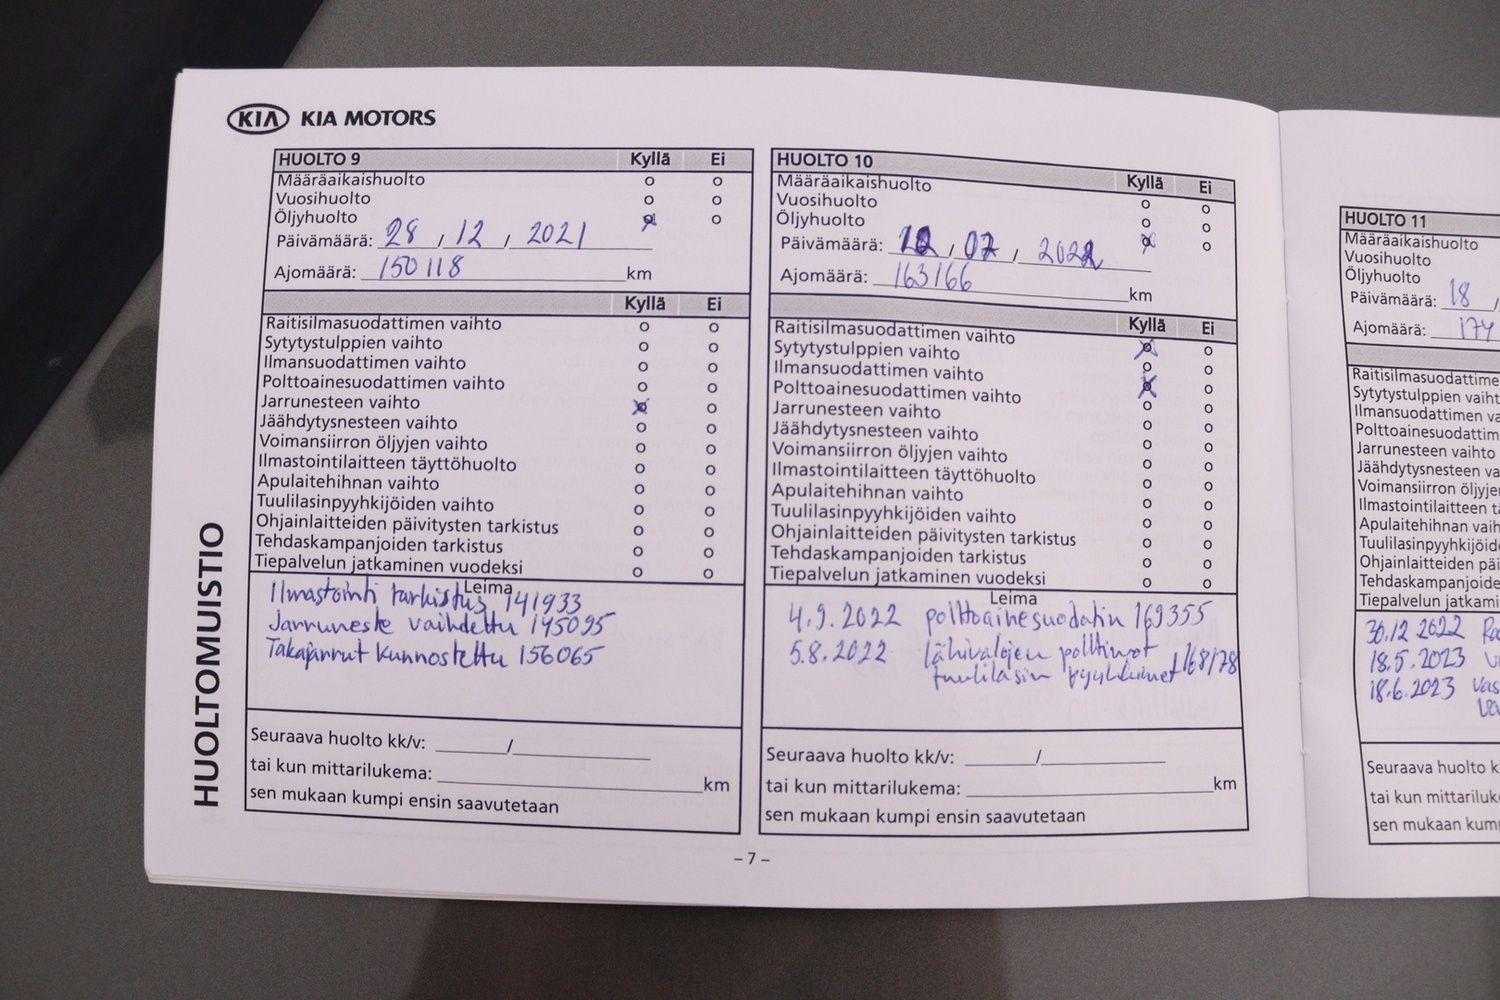 KIA KIA MOTORS
HUOLTOMUISTIO
HUOLTO 9 Kyllä Ei
Määräaikaishuolto o o
Vuosihuolto o o
Öljyhuolto x o
Päivämäärä: 28 / 12 / 2021
Ajomäärä: 150118 km
Kyllä Ei
Raitisilmasuodattimen vaihto o o
Sytytystulppien vaihto o o
Ilmansuodattimen vaihto o o
Polttoainesuodattimen vaihto o o
Jarrunesteen vaihto x o
Jäähdytysnesteen vaihto o o
Voimansiirron öljyjen vaihto o o
Ilmastointilaitteen täyttöhuolto o o
Apulaitehihnan vaihto o o
Tuulilasinpyyhkijöiden vaihto o o
Ohjainlaitteiden päivitysten tarkistus o o
Tehdaskampanjoiden tarkistus o o
Tiepalvelun jatkaminen vuodeksi o o
Leima
Ilmastointi tarkistus 141933
Jarruneste vaihdettu 145095
Takajarrut kunnostettu 156065
Seuraava huolto kk/v: /
tai kun mittarilukema: km
sen mukaan kumpi ensin saavutetaan
HUOLTO 10 Kyllä Ei
Määräaikaishuolto o o
Vuosihuolto o o
Öljyhuolto x o
Päivämäärä: 12 / 07 / 2022
Ajomäärä: 163166 km
Kyllä Ei
Raitisilmasuodattimen vaihto x o
Sytytystulppien vaihto o o
Ilmansuodattimen vaihto x o
Polttoainesuodattimen vaihto o o
Jarrunesteen vaihto o o
Jäähdytysnesteen vaihto o o
Voimansiirron öljyjen vaihto o o
Ilmastointilaitteen täyttöhuolto o o
Apulaitehihnan vaihto o o
Tuulilasinpyyhkijöiden vaihto o o
Ohjainlaitteiden päivitysten tarkistus o o
Tehdaskampanjoiden tarkistus o o
Tiepalvelun jatkaminen vuodeksi o o
Leima
4.9.2022 polttoainesuodatin 169355
5.8.2022 lähivalojen polttimot
tuulilasin pyyhkimet 168178
Seuraava huolto kk/v: /
tai kun mittarilukema: km
sen mukaan kumpi ensin saavutetaan
– 7 –
HUOLTO 11
Määräaikaishuolto
Vuosihuolto
Öljyhuolto
Päivämäärä: 18 /
Ajomäärä: 174
Raitisilmasuodattime
Sytytystulppien vaihto
Ilmansuodattimen va
Polttoainesuodattim
Jarrunesteen vaihto
Jäähdytysnesteen va
Voimansiirron öljyje
Ilmastointilaitteen t
Apulaitehihnan vaih
Tuulilasinpyyhkijöide
Ohjainlaitteiden päi
Tehdaskampanjoide
Tiepalvelun jatkami
30.12 2022
18.5.2023
18.6.2023 vas
Seuraava huolto k
tai kun mittariluk
sen mukaan kum